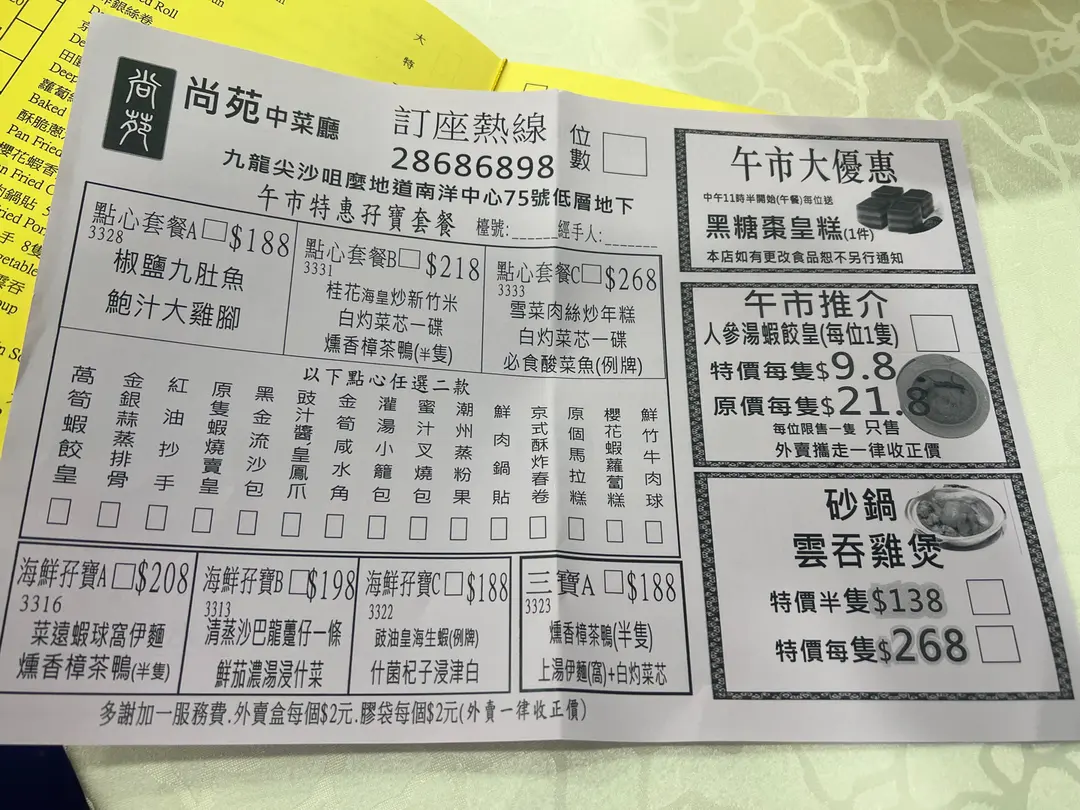 尚苑
尚苑中菜廳
訂座熱線
28686898
位數
九龍尖沙咀麼地道南洋中心75號低層地下
午市特惠孖寶套餐
檯號:______經手人:_______
點心套餐A $188
3328
椒鹽九肚魚
鮑汁大雞腳
點心套餐B $218
3331
桂花海皇炒新竹米
白灼菜芯一碟
燻香樟茶鴨(半隻)
點心套餐C $268
3333
雪菜肉絲炒年糕
白灼菜芯一碟
必食酸菜魚(例牌)
以下點心任選二款
萬筍蝦餃皇
金銀蒜蒸排骨
紅油抄手
原隻蝦燒賣皇
黑金流沙包
豉汁醬皇鳳爪
金筍咸水角
灌湯小籠包
蜜汁叉燒包
潮州蒸粉果
鮮肉鍋貼
京式酥炸春卷
原個馬拉糕
櫻花蝦蘿蔔糕
鮮竹牛肉球
海鮮孖寶A $208
3316
菜遠蝦球窩伊麵
燻香樟茶鴨(半隻)
海鮮孖寶B $198
3313
清蒸沙巴龍躉仔一條
鮮茄濃湯浸什菜
海鮮孖寶C $188
3322
豉油皇海生蝦(例牌)
什菌杞子浸津白
三寶A $188
3323
燻香樟茶鴨(半隻)
上湯伊麵(窩)+白灼菜芯
多謝加一服務費.外賣盒每個$2元.膠袋每個$2元(外賣一律收正價)
午市大優惠
中午11時半開始(午餐)每位送
黑糖棗皇糕(1件)
本店如有更改食品恕不另行通知
午市推介
人參湯蝦餃皇(每位1隻)
特價每隻$9.8
原價每隻$21.8
每位限售一隻 只售
外賣攜走一律收正價
砂鍋
雲吞雞煲
特價半隻$138
特價每隻$268
大
特
Roll
銀絲卷
Baked
Pan Fried
櫻花蝦
鍋貼 5
手 8隻